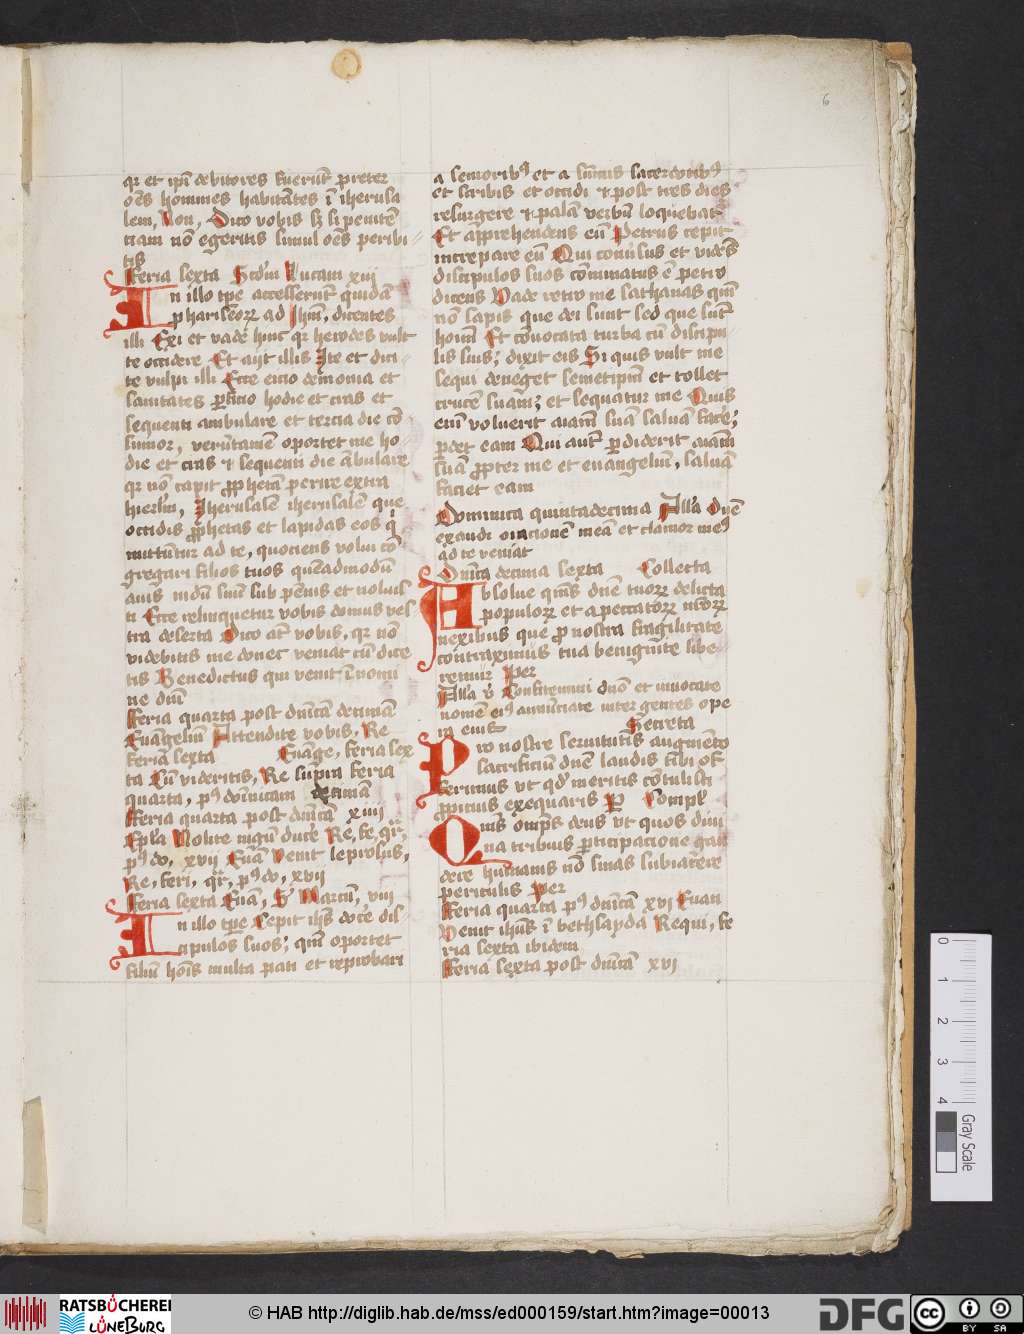 6
qr et ip̄i debitores fuerūt preter
oēs homines habitātes ī iherusa
lem, Non, Dico vobis sz si penitē
tiam nō egeritis simul oēs peribi
tis
Feria sexta Scdm̄ Lucam xiij
In illo tp̄e accesserūt quidā
phariseorꝝ ad Ihm̄, dicentes
illi Exi et vade hinc qr herodes vult
te occidere Et ayt illis Ite et dici
te vulpi illi Ecce eicio demonia et
sanitates ꝑficio hodie et cras et
sequenti ambulare et tercia die cō
sumor, verūtamē oportet me ho
die et cras et sequenti die ābulare
qr nō capit ꝓphetam perire extra
hierlm̄, Iherusalē iherusalē que
occidis ꝓphetas et lapidas eos q̄
mittūtur ad te, quociens volui cō
gregari filios tuos quēadmodū
auis nidū suū sub pēnis et noluis
ti Ecce relinquetur vobis domus ves
tra deserta Dico at̄ vobis, qr nō
videbitis me donec veniat cū dice
tis Benedictus qui venit ī nomi
ne dn̄i
Feria quarta post dn̄icā decimā
Euāgeliū Attendite vobis, Re
Feria sexta Euāge, feria sex
ta Cū videritis, Re supra feria
quarta, pꝰ dominicam decimā
Feria quarta post dn̄icā xiiij
Ep̄la Nolite iugū duce Re, fe, qr̄,
pꝰ do, xvij Euā Venit leprosus,
Re, feri, qr̄, pꝰ do, xvij
Feria sexta Euā, S Marcū, viij
In illo tp̄e Cepit ihs̄ doce dis
cipulos suos; qm̄ oportet
filiū hōis multa pati et reprobari
a senioribꝰ et a sūmis sacerdotibꝰ
et scribis et occidi et post tres dies
resurgere et palā verbū loquebat̄
Et apprehendens eū Petrus cepit
increpare eū Qui cōuersus et vidēs
discipulos suos cōminatus ē petro
dicens Vade retro me sathanas qm̄
nō sapis que dei sunt sed que sūt
hoīm Et cōuocata turba cū discipu
lis suis; dixit eis Si quis vult me
sequi deneget semetipm̄ et tollet
crucē suam; et sequatur me Quis
eni voluerit aīam suā saluā face;
ꝑdet eam Qui aut̄ ꝑdiderit aīam
suā ꝓpter me et euangeliū, saluā
faciet eam
Dominica quintadecima Alla Dn̄e
exaudi oracionē meā et clamor meꝰ
ad te veniat
Dn̄ica decima sexta Collecta
Absolue qm̄s dn̄e tuorꝝ delicta
populorꝝ et a peccatorꝝ nr̄orꝝ
nexibus que ꝓ nostra fragilitate
contraximus tua benignitate libe
remur Per
Alla v̄ Confitemini dn̄o et inuocate
nomē eiꝰ annūciate inter gentes ope
ra eius Secreta
Pro nostre seruitutis augmēto
sacrificiū dn̄e laudis tibi of
ferimus vt qd̄ meritis cōtulisti
ꝓpitius exequaris P Compl̄
Qm̄s omp̄s deus vt quos diui
na tribuis ꝑticipacione gau
dere humanis nō sinas subiacere
periculis Per
Feria quarta pꝰ dn̄icā xvi Euan
Venit ihus̄ ī bethsayda Requi, fe
ria sexta ibidem
Feria sexta post dn̄icā xvj
0 1 2 3 4
Gray Scale
RATSBÜCHEREI
LÜNEBURG
© HAB http://diglib.hab.de/mss/ed000159/start.htm?image=00013
DFG
cc BY SA